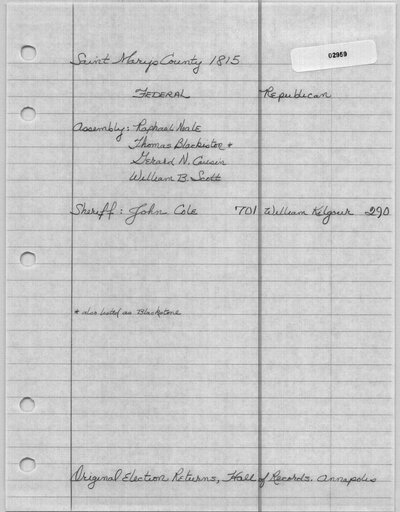 Saint Marys County 1815
02959
FEDERAL Republican
Assembly: Raphael Neale
Thomas Blackiston *
Gerard N. Causin
William B. Scott
Sheriff: John Cole 701 William Kilgour 290
* also listed as Blackstone
Original Election Returns, Hall of Records. Annapolis